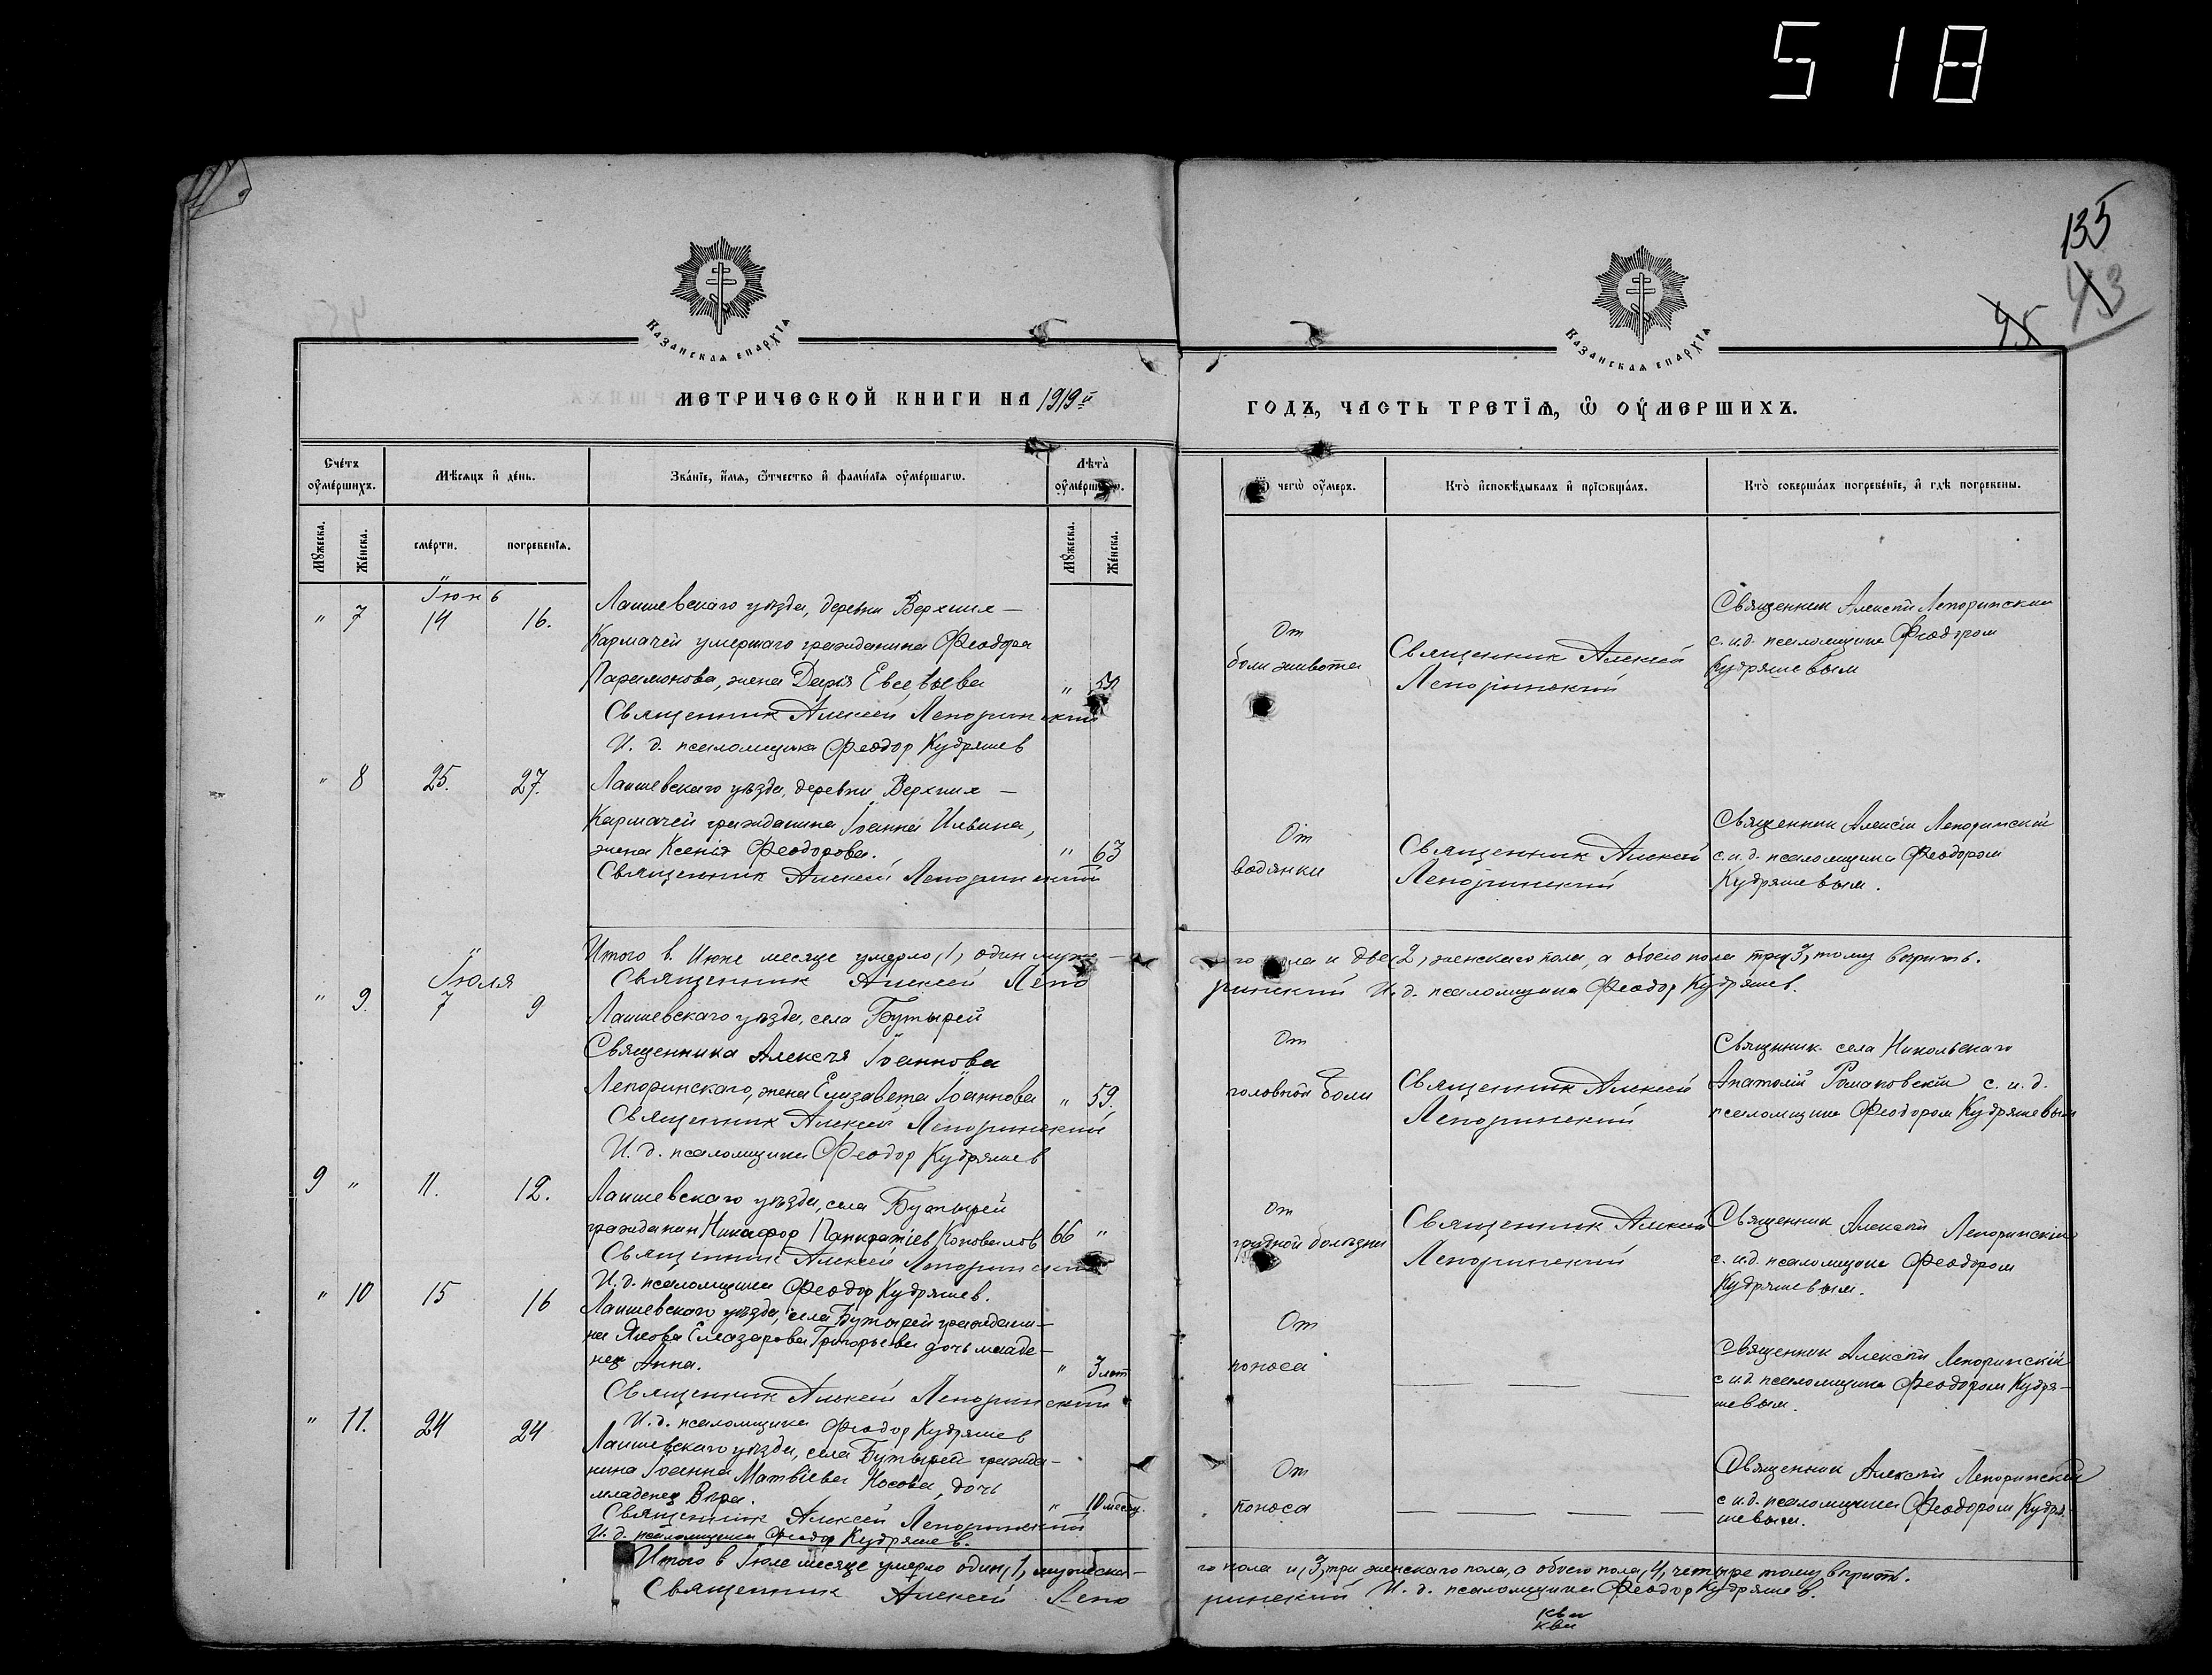 518
135
43
45
Казанская епархїя
Казанская епархїя
МЕТРИЧЕСКОЙ КНИГИ НА 1919й
ГОДЪ, ЧАСТЬ ТРЕТЇЯ, Ѡ ОУМЕРШИХЪ.
Счетъ оумершихъ.
Мѣсяцъ и день.
Званїе, имя, ѻтчество и фамилїя оумершагѡ.
Лѣта оумершагѡ.
Ѿ чегѡ оумеръ.
Кто исповѣдывалъ и прїѡбщалъ.
Кто совершалъ погребенїе, и гдѣ погребены.
Мужеска.
Женска.
смерти.
погребенїя.
Мужеска.
Женска.
Іюнь
" 7 14 16. Лаишевскаго уѣзда, деревни Верхних –
Кармачей умершаго гражданина Феодора
Парамонова, жена Дарія Евсевьева " 59
Священник Алексей Лепоринский
И. д. псаломщика Феодор Кудряшев
От
боли живота
Священник Алексей
Лепоринский
Священник Алексѣй Лепоринский
с и.д. псаломщика Феодором
Кудряшевым
" 8 25. 27. Лаишевскаго уѣзда, деревни Верхних –
Кармачей гражданина Іоанна Ильина,
жена Ксенія Феодорова. " 63
Священник Алексей Лепоринский
От
водянки
Священник Алексей
Лепоринский
Священник Алексѣй Лепоринскій
с и.д. псаломщика Феодором
Кудряшевым.
Итого в Июне месяце умерло, 1, один муж–
го пола и две, 2, женскаго пола, а обоего пола три, 3, тому вѣрить.
Священник Алексей Лепо
ринский И. д. псаломщика Феодор Кудряшев.
Іюля
" 9. 7 9 Лаишевскаго уѣзда, села Бутырей
Священника Алексѣя Іоаннова
Лепоринскаго, жена Елизавета Іоаннова " 59.
Священник Алексей Лепоринский
И. д. псаломщика Феодор Кудряшев
От
головной боли
Священник Алексей
Лепоринский
Священник села Никольскаго
Анатолій Романовскій с и. д.
псаломщика Феодором Кудряшевым
9 " 11. 12. Лаишевскаго уѣзда, села Бутырей
гражданин Никифор Панкратіев Коновалов 66 "
Священник Алексей Лепоринский
И. д. псаломщика Феодор Кудряшев.
От
грудной болѣзни
Священник Алексей
Лепоринский
Священник Алексѣй Лепоринскій
с и.д. псаломщика Феодором
Кудряшевым.
" 10 15 16 Лаишевскаго уѣзда, села Бутырей граждани–
на Якова Елазарова Григорьева дочь младе–
нец Анна. " 3 лет
Священник Алексей Лепоринский
И. д. псаломщика Феодор Кудряшев
От
поноса
– – –
Священник Алексѣй Лепоринскій
с и.д. псаломщика Феодором Кудря–
шевым.
" 11. 24 24 Лаишевскаго уѣзда, села Бутырей гражда–
нина Іоанна Матвіева Носова, дочь
младенец Вѣра. " 10 месяц.
Священник Алексей Лепоринский
И. д. псаломщика Феодор Кудряшев.
От
поноса
– – – –
Священник Алексѣй Лепоринский
с и.д. псаломщика Феодором Кудря–
шевым.
Итого в Іюле месяце умерло один, 1, мужеска–
го пола и, 3, три женскаго пола, а обоего пола, 4, четыре тому вѣрить.
Священник Алексей Лепо
ринский И. д. псаломщика Феодор Кудряшев.